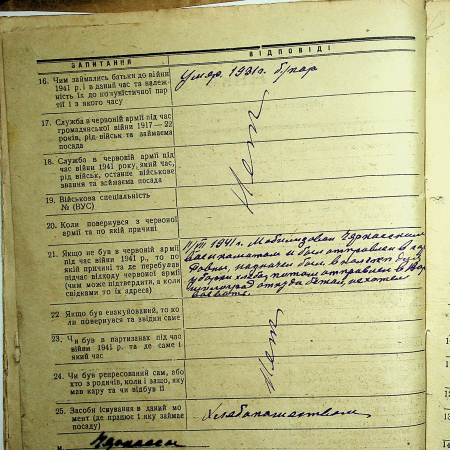 ЗАПИТАННЯ
ВІДПОВІДІ
16. Чим займались батьки до війни
1941 р. і в даний час та належ-
ність їх до комуністичної пар-
тії і з якого часу
Умер. 1931 г.
17. Служба в червоній армії під час
громадянської війни 1917—22
років, рід військ та займаєма
посада
18. Служба в червоній армії під
час війни 1941 року, який час,
рід військ, останне військове
звання та займаєма посада
19. Військова спеціальність
№ (ВУС)
Нет
20. Коли повернувся з червоної
армії та по якій причині
21. Якщо не був в червоній армії
під час війни 1941 р., то по
якій причині та де перебував
підчас відходу червоної армії
(чим може підтвердити, в коли
свідками то їх адреса)
1941 г. Мобилизован
военкоматом и был отправлен в
назначен был в колхоз для
уборки хлеба, потом отправлен в
откуда бежал
22. Якщо був евакуйований, то ко-
ли повернувся та звідки саме
23. Чи був в партизанах під час
війни 1941 р. та де саме і
який час
24. Чи був репресований сам, або
хто в родичів, коли і защо, яку
мав кару та чи відбув її
Нет
25. Засоби існування в даний мо-
мент (де працює і яку займає
посаду)
Хлебопашеством